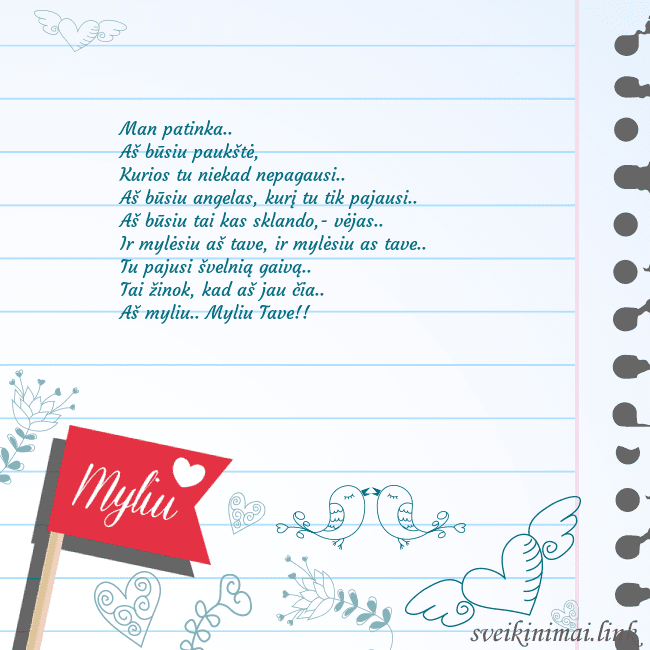 Man patinka..
Aš būsiu paukštė,
Kurios tu niekad nepagausi..
Aš būsiu angelas, kurį tu tik pajausi..
Aš būsiu tai kas sklando,- vėjas..
Ir mylėsiu aš tave, ir mylėsiu as tave..
Tu pajusi švelnią gaivą..
Tai žinok, kad aš jau čia..
Aš myliu.. Myliu Tave!!
Myliu
sveikinimai.link